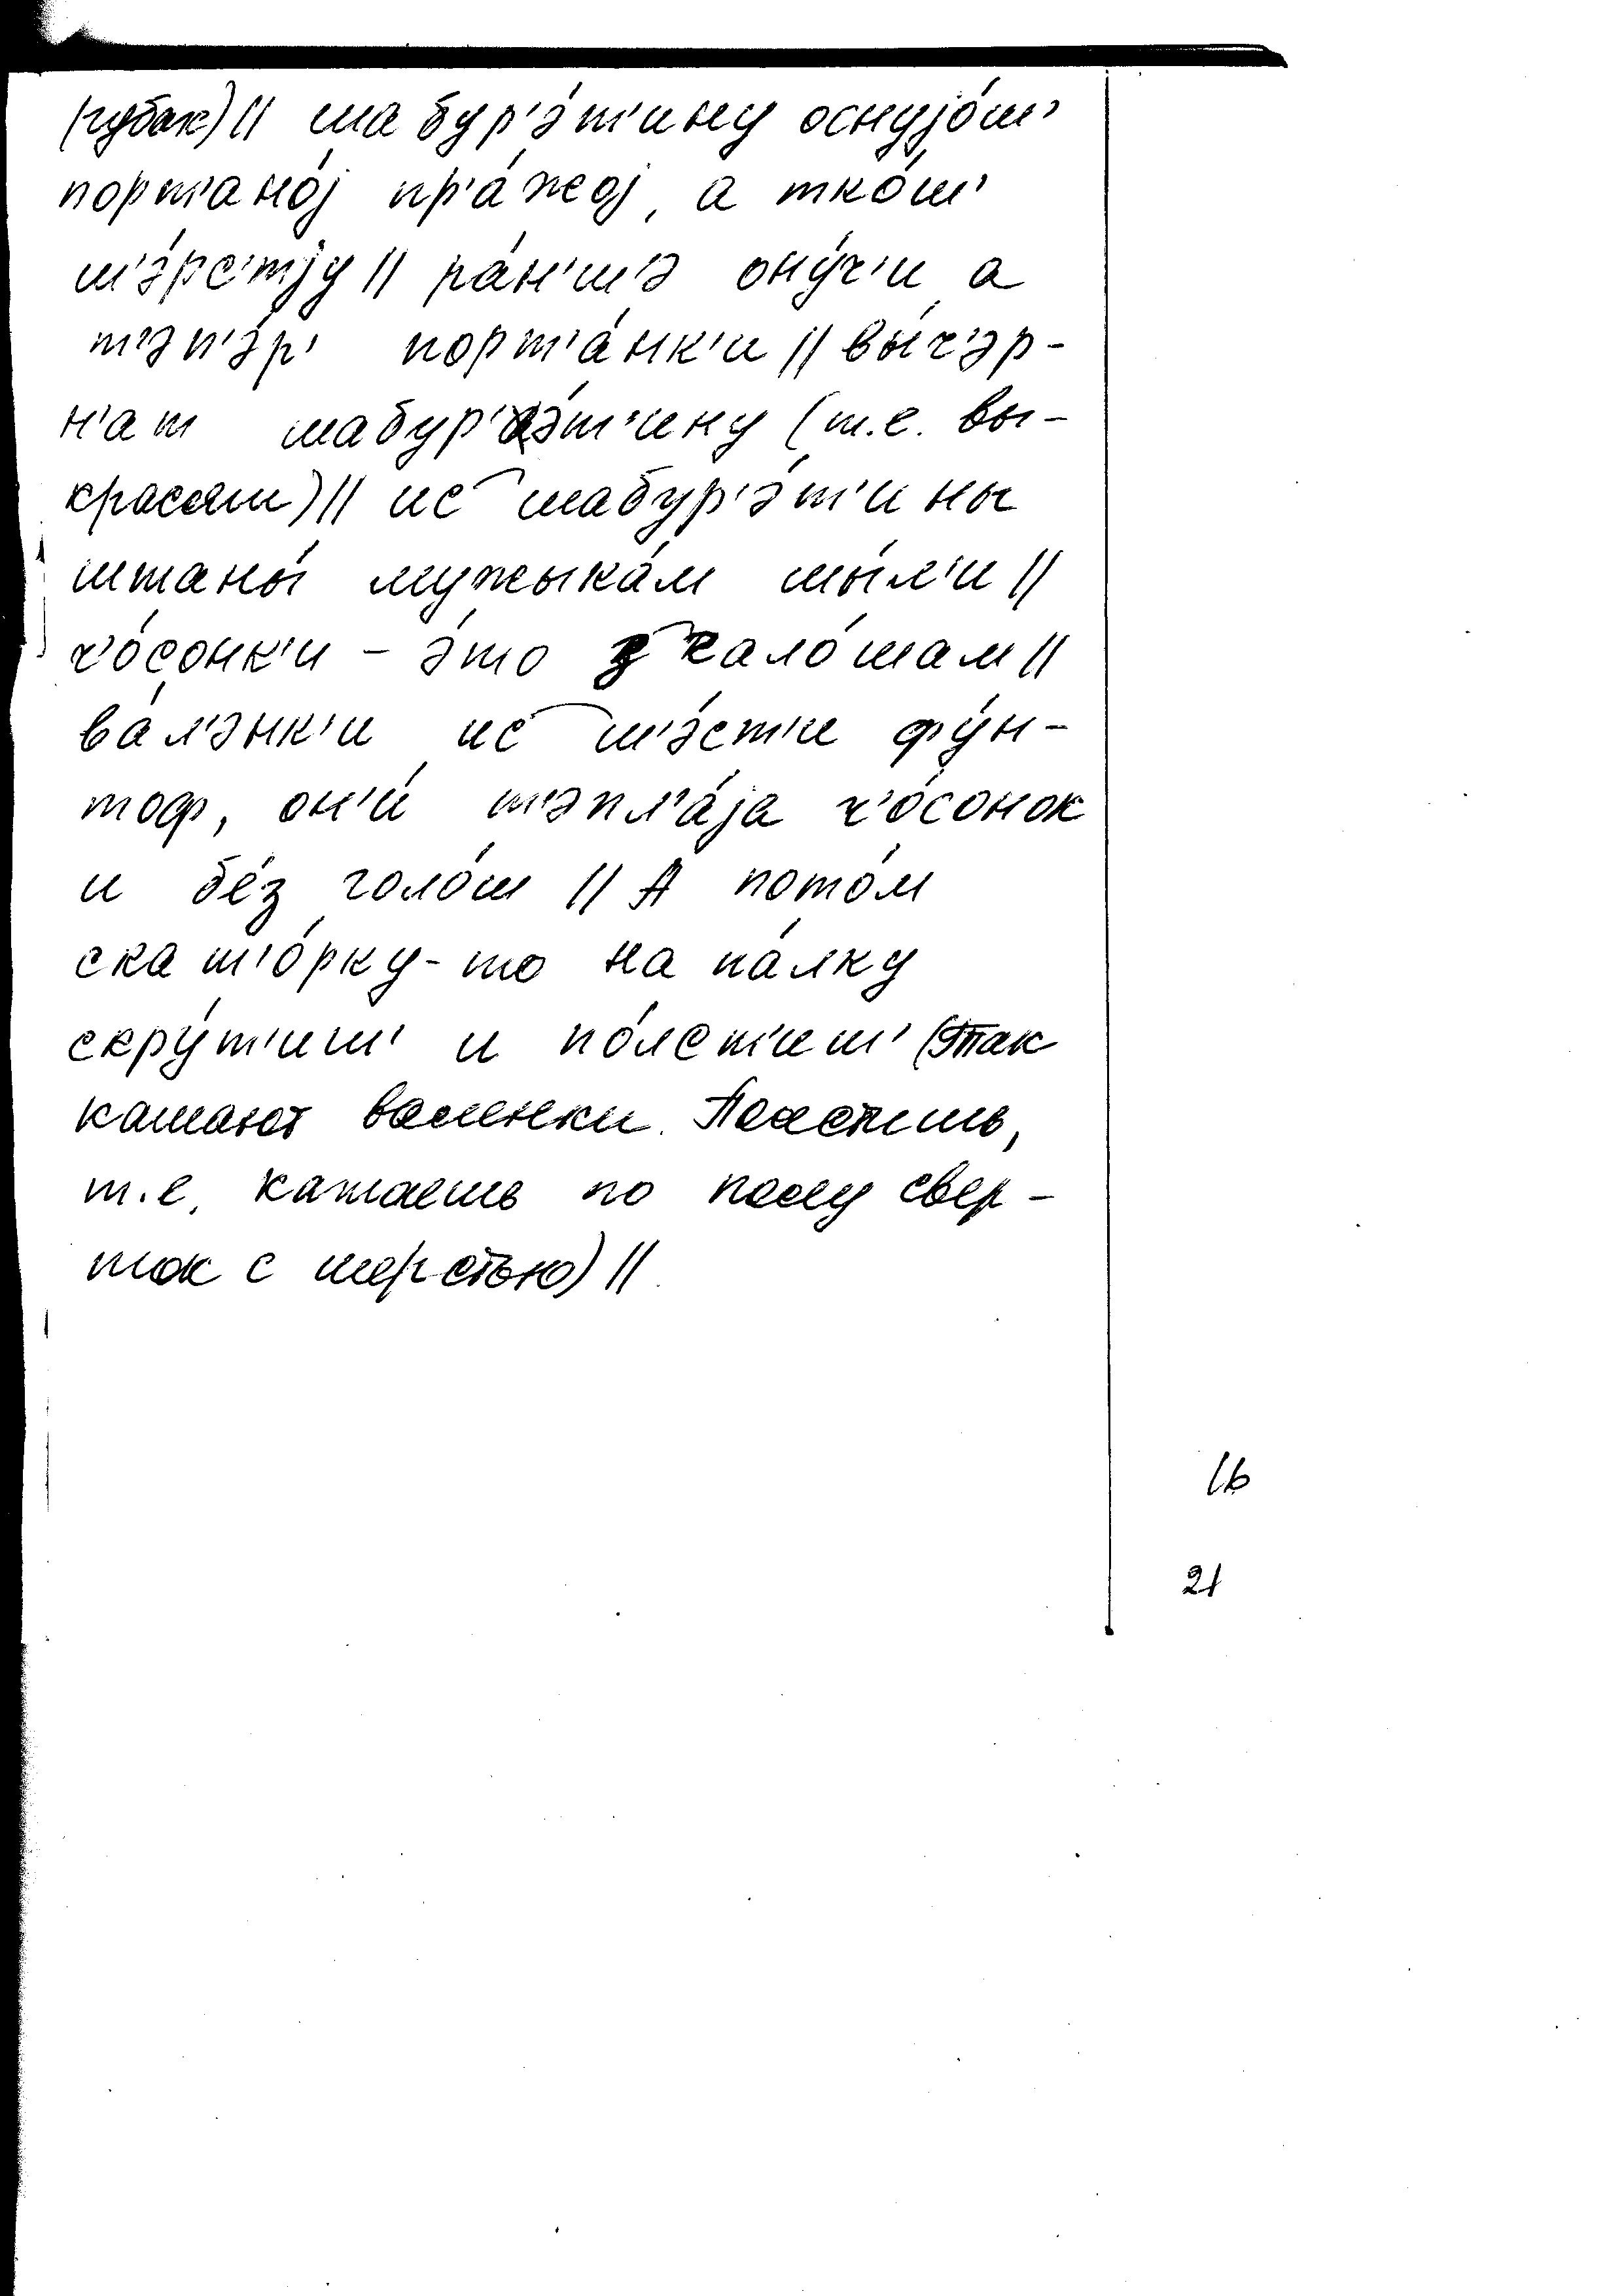 (чубак) // шабур'э́т'ину оснуjо́ш'
портано́j пр'а́жоj, а тко́ш'
ш'э́рс'тjу // ра́н'ш'э ону́ч'и, а
т'эп'э́р' порт'а́нк'и // вы́ч'эр-
н'ат шабур'э́т'ину (т.е. вы-
красят) // ис шабур'э́т'ины
штаны́ мужыка́м шы́л'и //
ч'о́сонк'и - э́то з кало́шам //
ва́л'энк'и ис ш'э́ст'и фу́н-
тоф, он'и́ т'эпл'а́jа ч'о́сонок
и бе́з голо́ш // А пото́м
скат'о́рку-то на па́лку
скру́т'иш' и по́лст'иш' (Так
катают валенки. Полстишь,
т.е. катаешь по полу свер-
ток с шерстью) //
16
21